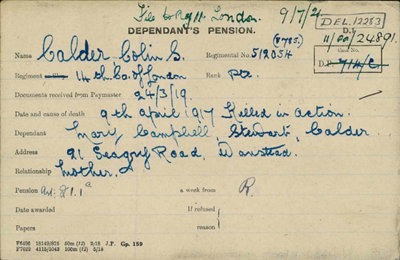 File to Rgn. London. 9/7/21
DEL.12283
DEPENDANT'S PENSION.
D.P.
11/00/24891.
Case No.
(8785)
Name Calder, Colin S. Regimental No. 512054
Regiment 14th Co. of London Rank Pte.
Documents received from Paymaster 24/3/19.
Date and cause of death 9th April 1917 Killed in action.
Dependant Mary Campbell Stewart Calder.
Address 91 Seagry Road, Wanstead.
Relationship Mother.
Pension Art: 21.1a a week from R.
Date awarded If refused
Papers reason
F6496 15140/819 50m (12) 2/18 J.P. Gp. 159
F7622 4115/1048 100m (12) 5/18